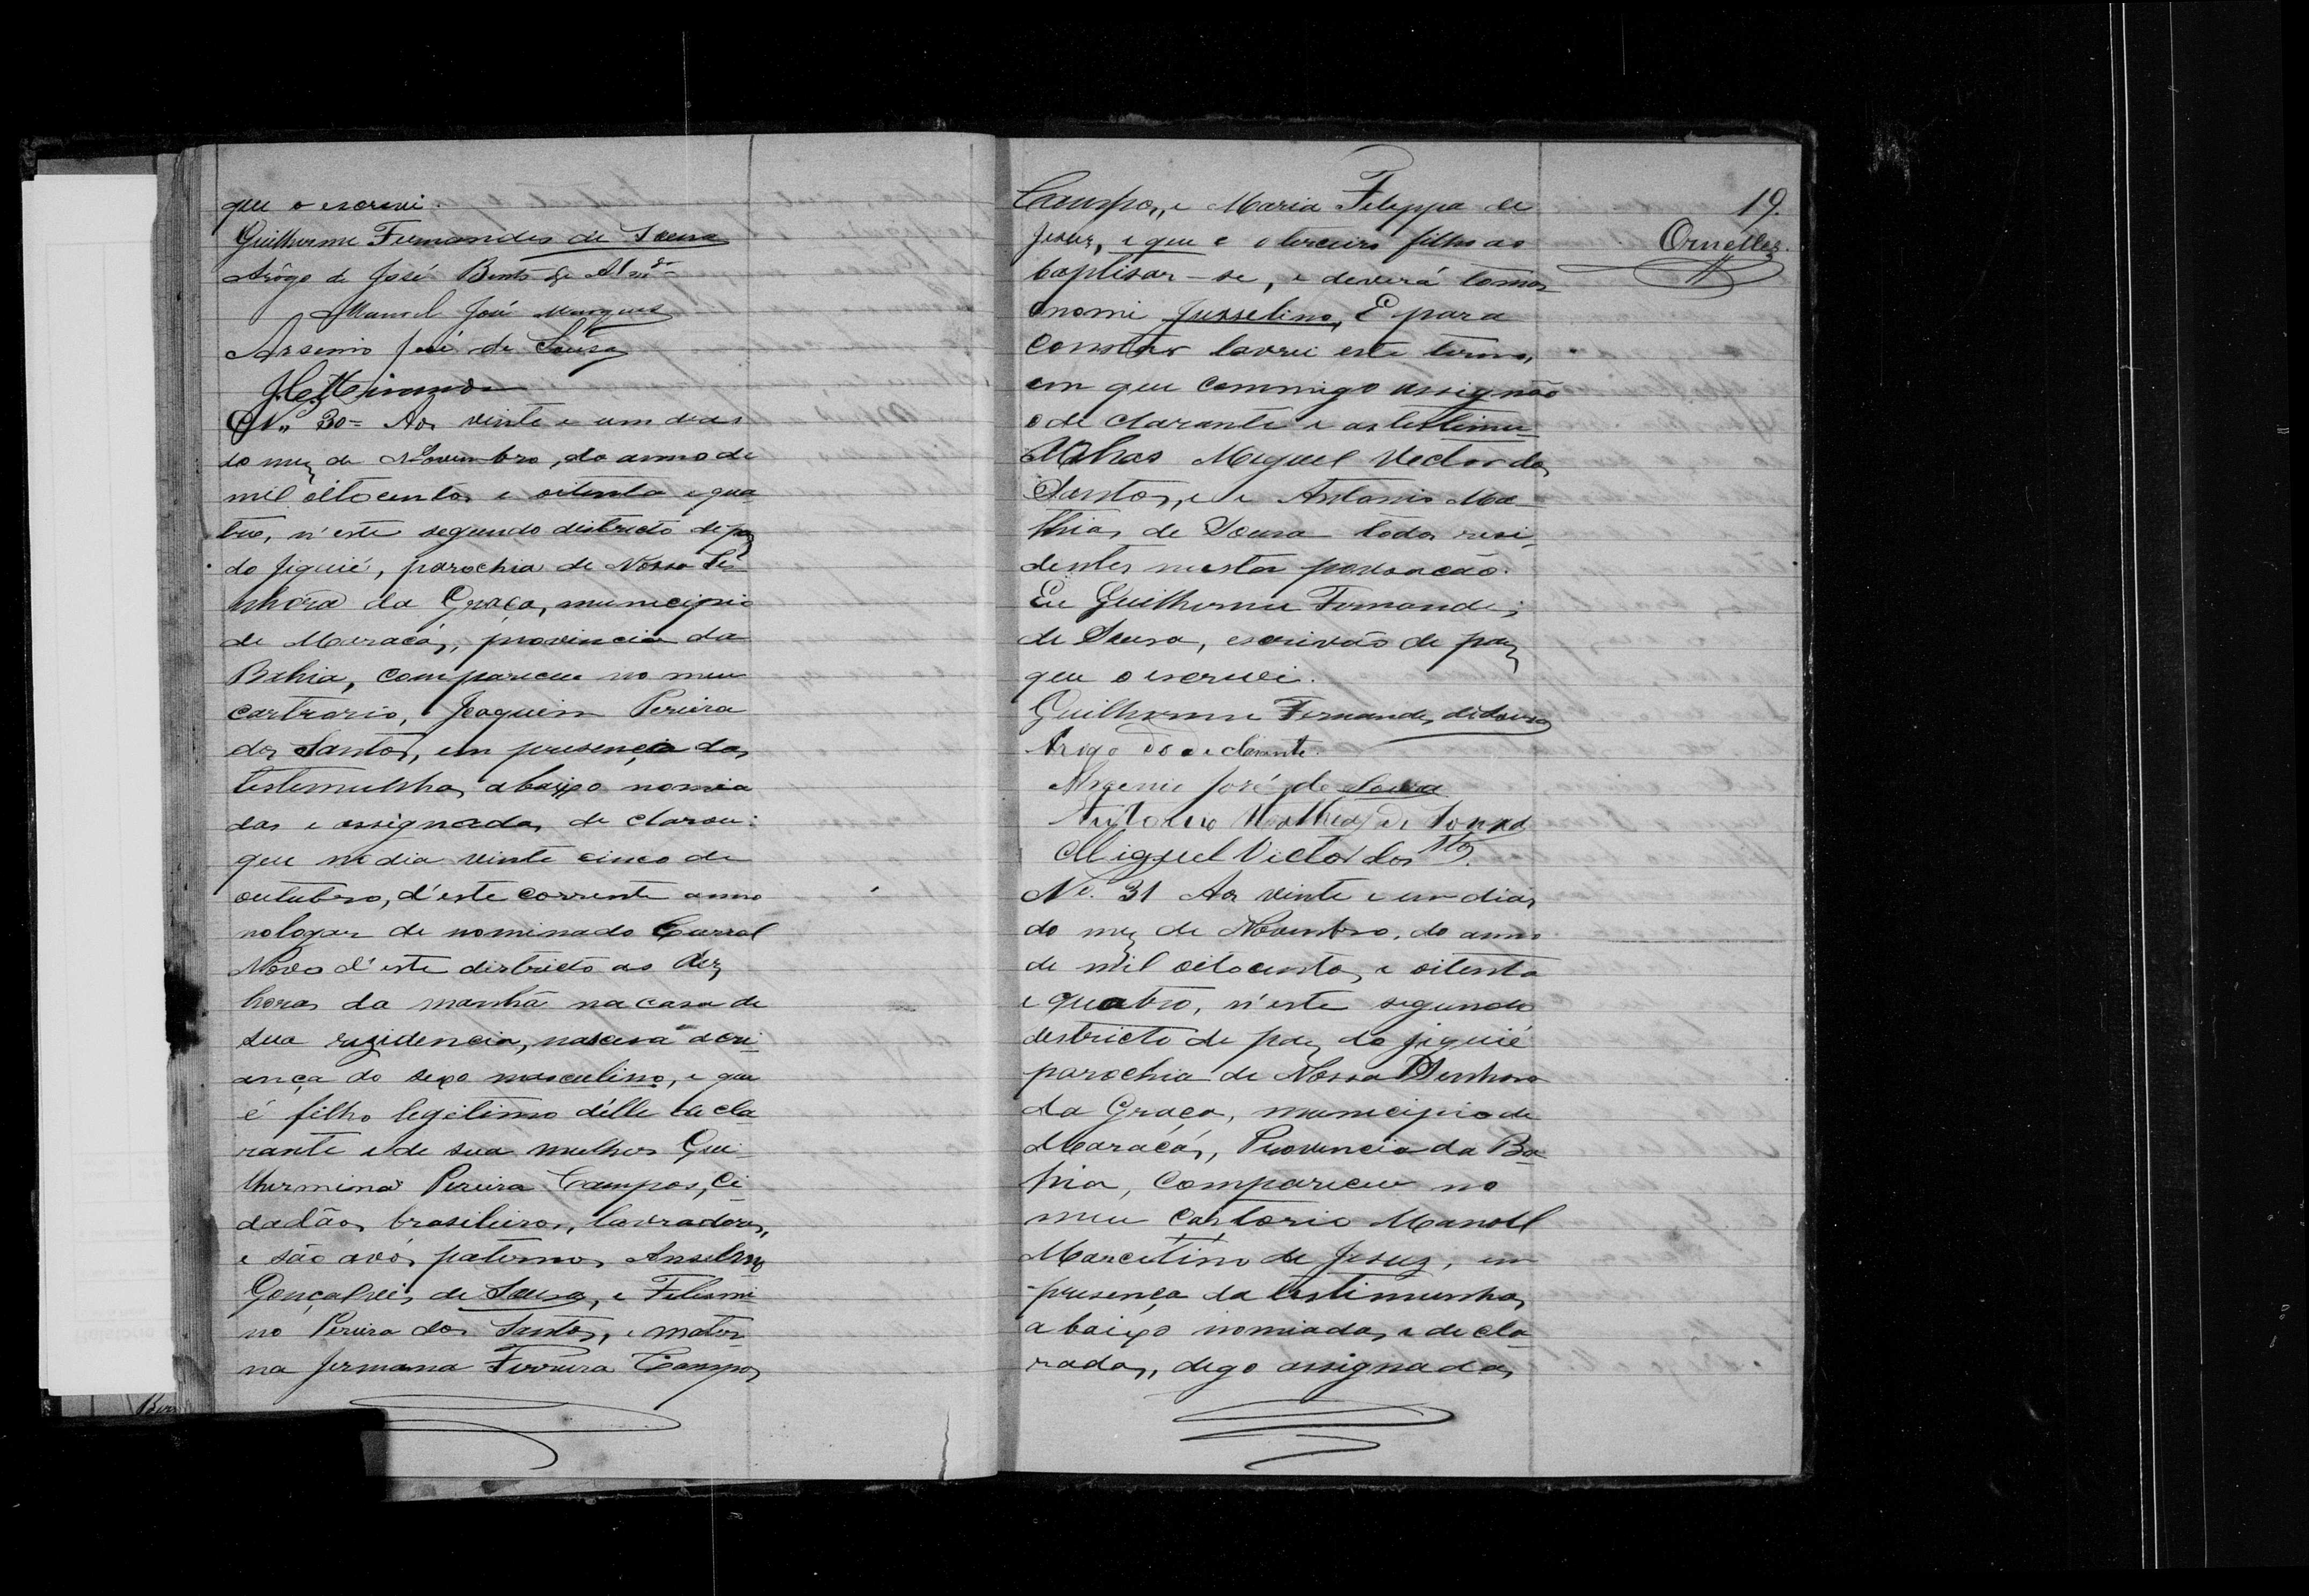 que o escrevi.
Guilherme Fernandes de Souza
Arôgo de José Bento de
Manoel José Marques
Arsenio José de Souza
Nº 30 = Aos vinte e um dias
do mez de Novembro, do anno de
mil oitocentos e oitenta e qua-
tro, n'este segundo districto de paz
do Jiquié, parochia de Nossa Se-
nhora da Graça, municipio
de Maracás, provincia da
Bahia, compareceu no meu
cartrorio, Joaquim Pereira
dos Santos, em presença das
testemunhas abaixo nomia
das e assignadas declarou:
que no dia vinte cinco de
outubro, d'este corrente anno
no logar denominado Curral
Novo d'este districto as dez
horas da manhã na casa de
sua rezidencia, nascera a cri-
ança do sexo masculino, e que
é filho legitimo d'elle decla
rante e de sua mulher Gui-
lhermina Pereira Campos, Ci-
dadãos brasileiros, lavradores,
e são avós paternos Anselmo
Gonçalves de Souza, e Felismi-
no Pereira dos Santos, e mater
na Jermana Ferreira Campos
19.
Ornellas.
Campos, e Maria Filippa de
Jesuz, e que e o terceiro filho ao
baptisar-se, e deverá tomar
o nome Jusselino, E para
constar lavrei este termo,
em que commigo assignão
o declarante e as testimu-
nhas Miguel Vector dos
Santos, e e Antonio Ma-
thias de Souza todos resi-
dentes nesta povoação.
Eu Guilherme Fernandes
de Souza, escrivão de paz
que o escrevi.
Guilherme Fernandes de Souza
Arogo do declarante.
Argenio José de Souza
Antonio Mathias de Souza
Miguel Victor dos Stos.
Nº. 31 Aos vinte e um dias
do mez de Novembro, do anno
de mil oitocentos e oitenta
e quatro, n'este segundo
destricto de paz do Jiquié
parochia de Nossa Senhora
da Graça, municipio de
Maracás, Provincia da Ba-
hia, Compareceu no
meu Cartorio Manoel
Marcelino de Jesuz, em
presença da testimunhas
abaixo nomiadas e decla-
radas, digo assignadas